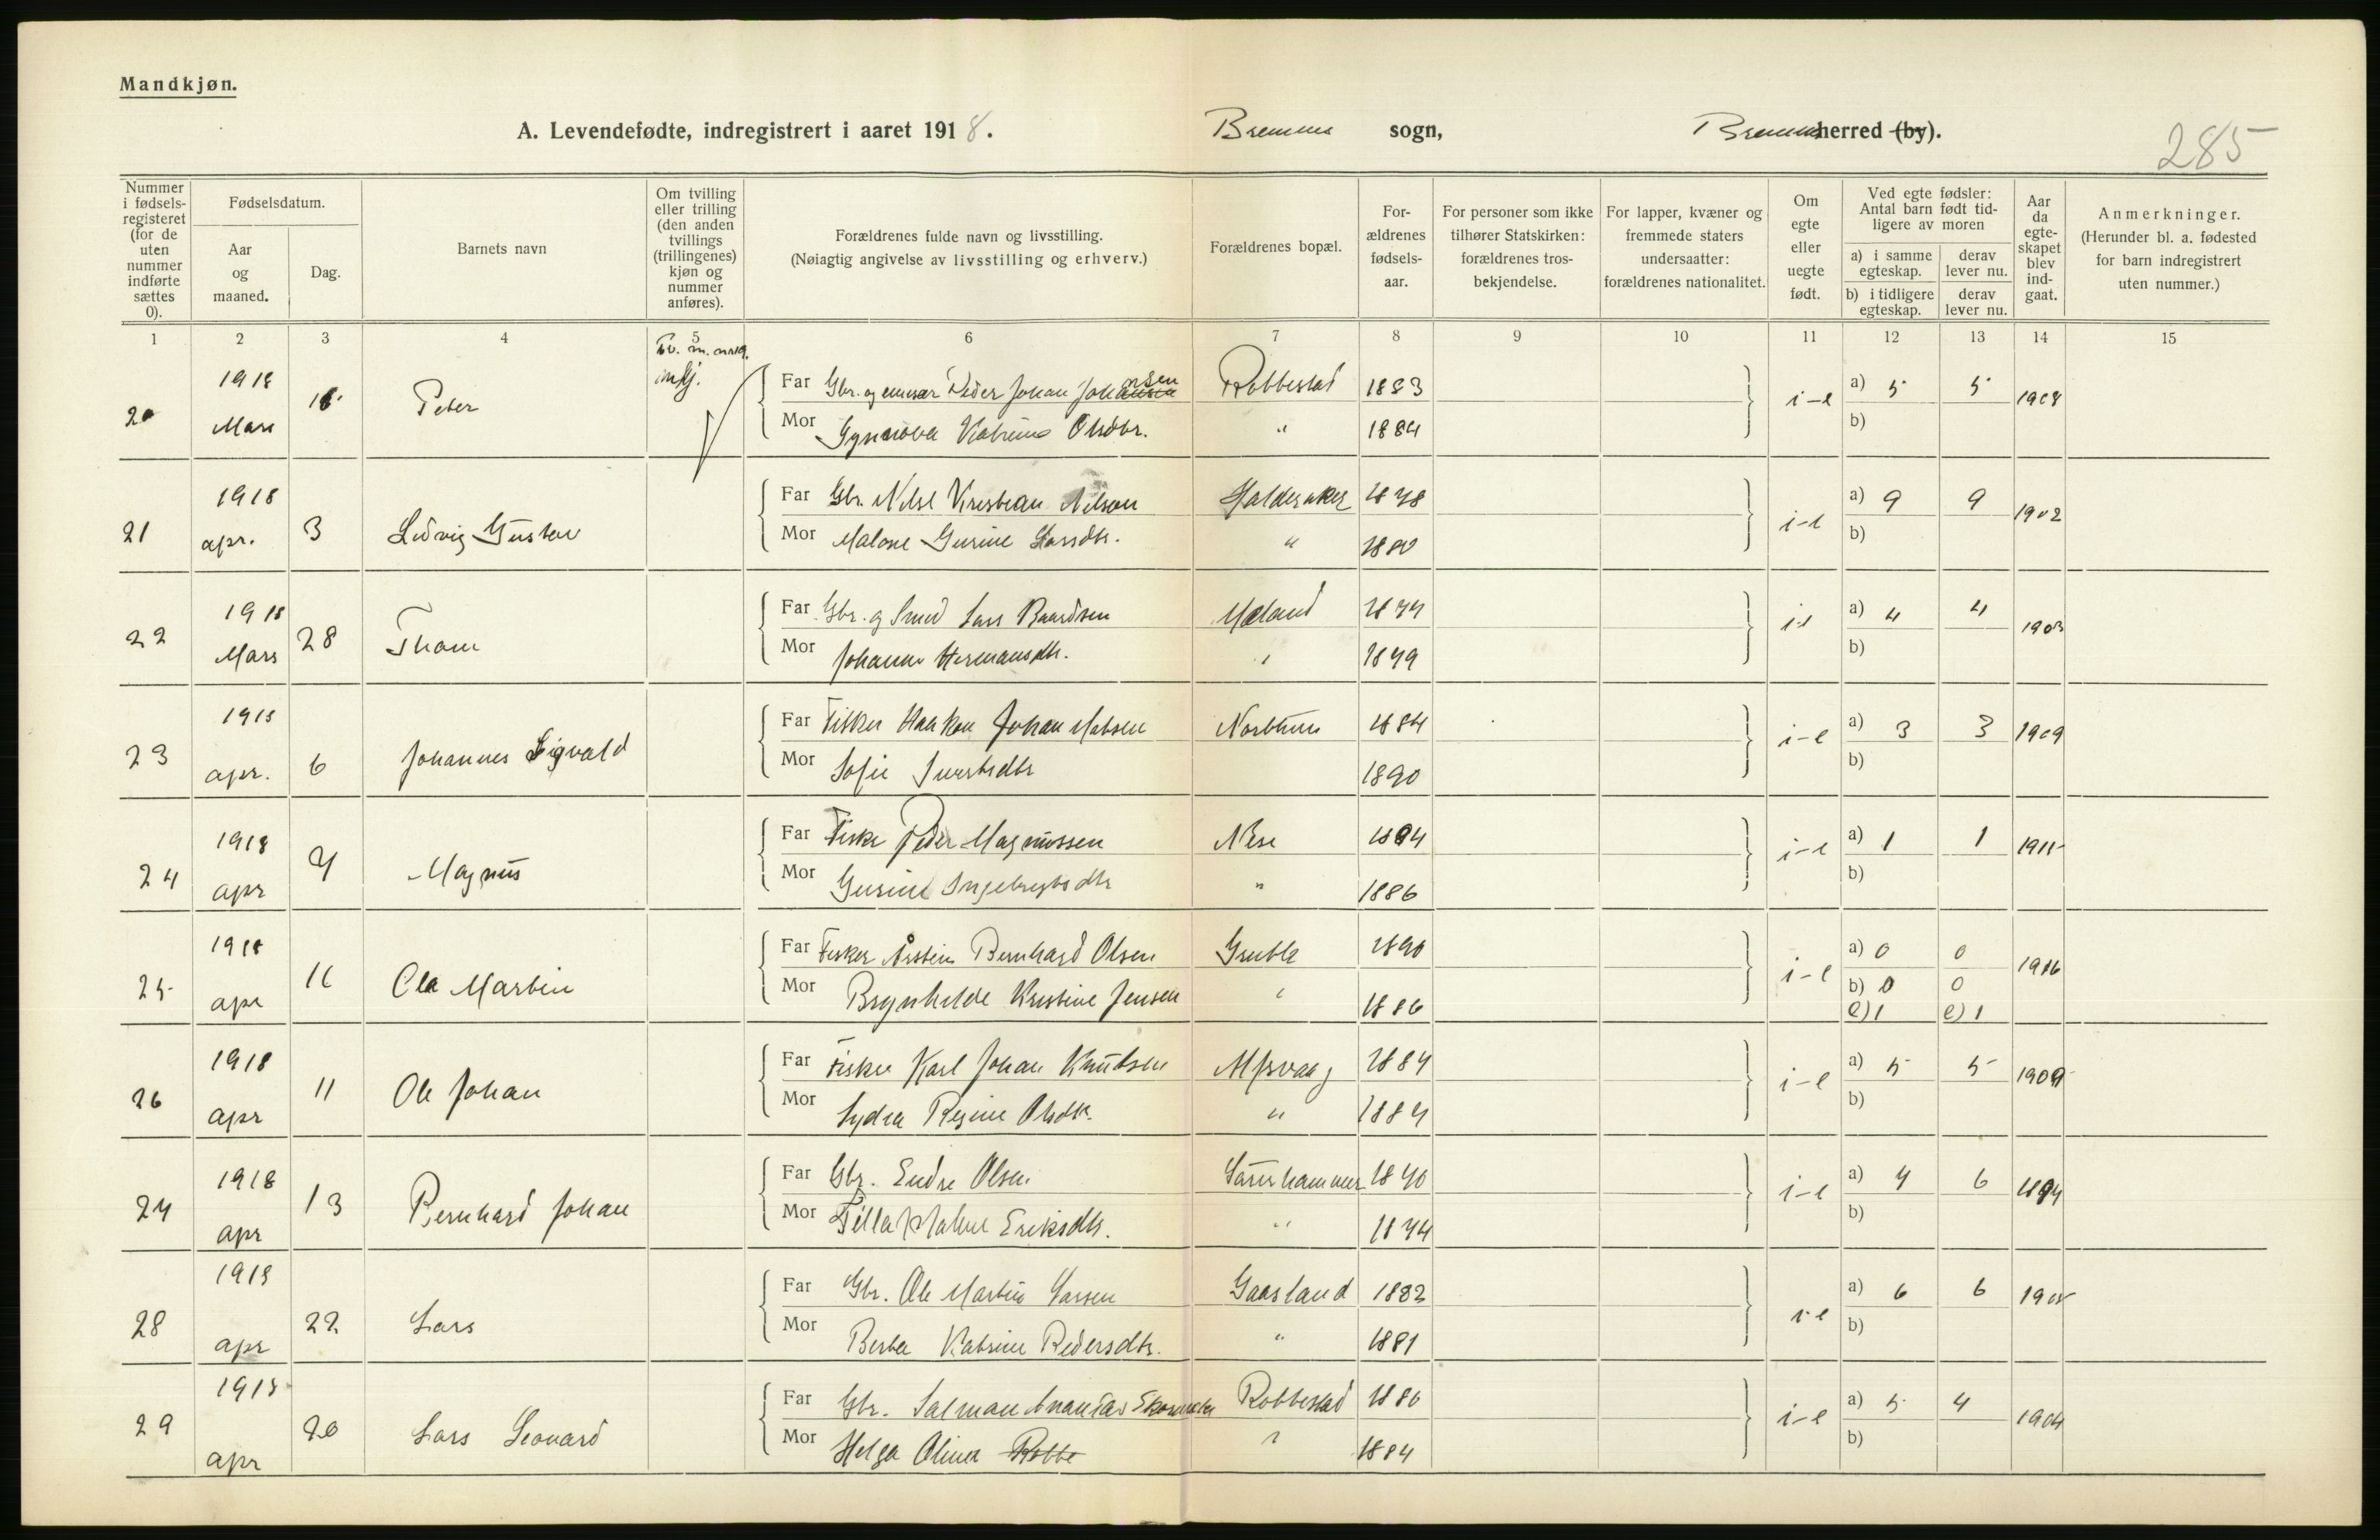 Mandkjøn.
A. Levendefødte, indregistrert i aaret 1918. Bremnes sogn, Bremnes herred (by).
285
Nummer i fødselsregisteret (for de uten nummer indførte sættes 0).
Fødselsdatum.
Aar og maaned.
Dag.
Barnets navn
Om tvilling eller trilling (den anden tvillings (trillingenes) kjøn og nummer anføres).
Forældrenes fulde navn og livsstilling.
(Nøiagtig angivelse av livsstilling og erhverv.)
Forældrenes bopæl.
Forældrenes fødselsaar.
For personer som ikke tilhører Statskirken: forældrenes trosbekjendelse.
For lapper, kvæner og fremmede staters undersaatter: forældrenes nationalitet.
Om egte eller uegte født.
Ved egte fødsler: Antal barn født tidligere av moren
a) i samme egteskap.
derav lever nu.
b) i tidligere egteskap.
derav lever nu.
Aar da egteskapet blev indgaat.
Anmerkninger.
(Herunder bl. a. fødested for barn indregistrert uten nummer.)
1 2 3 4 5 6 7 8 9 10 11 12 13 14 15
20 1918 Mars Peter Tv. m. nr 19. Far Gbr. og Peder Johan Johannsen Robbestad 1883 i-e a) 5 5 1908
Mor Synnøva Katrina Olsdtr. " 1884 b)
21 1918 apr. 3 Ludvig Gustav Far Gbr. Nils Kristian Nilsen Halderaker 1878 i-e a) 9 9 1902
Mor Malene Gurine Larsdtr. " 1880 b)
22 1918 Mars 28 Thom Far Gbr. og Smed Lars Baardsen Meland a) 4 4 1903
Mor Johanne Hermansdtr. " 1879 b)
23 1918 apr. 6 Johannes Sigvald Far Fisker Haakon Johan Matsen 1884 i-e a) 3 3 1909
Mor Sofie Sivertsdtr 1890 b)
24 1918 apr 7 Magnus Far Fisker Peder Magnussen Nese i-e a) 1 1 1915
Mor Gurine Ingebrigtsdtr " 1886 b)
25 1918 apr Ole Martin Far Fisker Bernhard Olsen 1890 i-e a) 0 0 1916
Mor Brynhilde Kristine Jensen " 1886 b) 0 0
c) 1 c) 1
26 1918 apr 11 Ole Johan Far Fisker Karl Johan Knutsen 1884 i-e a) 5 5 1909
Mor Lydia Regine Olsdtr. " 1884 b)
27 1918 apr 13 Bernhard Johan Far Gbr. Endre Olsen 1870 i-e a) 7 6
Mor Eriksdtr. " 1874 b)
28 1918 apr 22 Lars Far Gbr. Ole Martin Larsen Gaasland 1882 i-e a) 6 6
Mor Berta Katrine Pedersdtr. " 1881 b)
29 1918 apr 20 Lars Leonard Far Gbr. Salmon Robbestad 1880 i-e a) 5 4 1904
Mor Helga Oline Robbe " 1884 b)